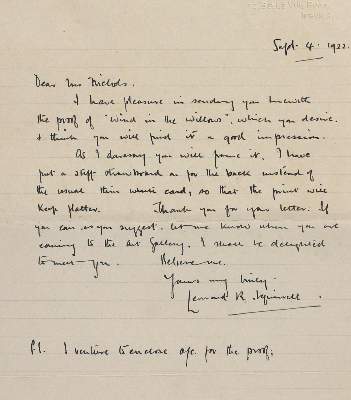 Sept. 4. 1922.
Dear Mrs Nichols.
I have pleasure in sending you herewith
the proof of "Wind in the Willows", which you desire.
I think you will find it a good impression.
As I daresay you will frame it, I have
put a stiff strawboard as for the back instead of
the usual thin white card, so that the print will
keep flatter. Thank you for your letter. If
you can, as you suggest, let me know when you are
coming to the Art Gallery, I shall be delighted
to meet you. Believe me.
Yours very truly.
Leonard R. Squirrell.
P.S. I venture to enclose a/c. for the proof.